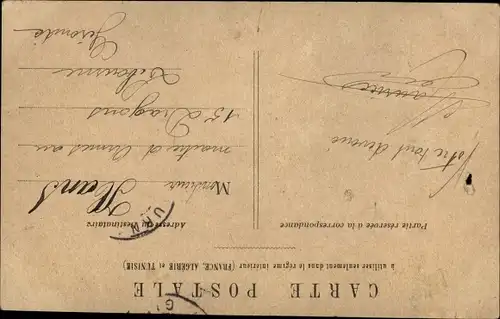 CARTE POSTALE
à utiliser seulement dans le régime intérieur (FRANCE, ALGÉRIE et TUNISIE)
Partie réservée à la correspondance
Adresse du Destinataire
Votre tout dévoué
Monsieur
maitre d'armes au
15e Dragons
Libourne
Gironde